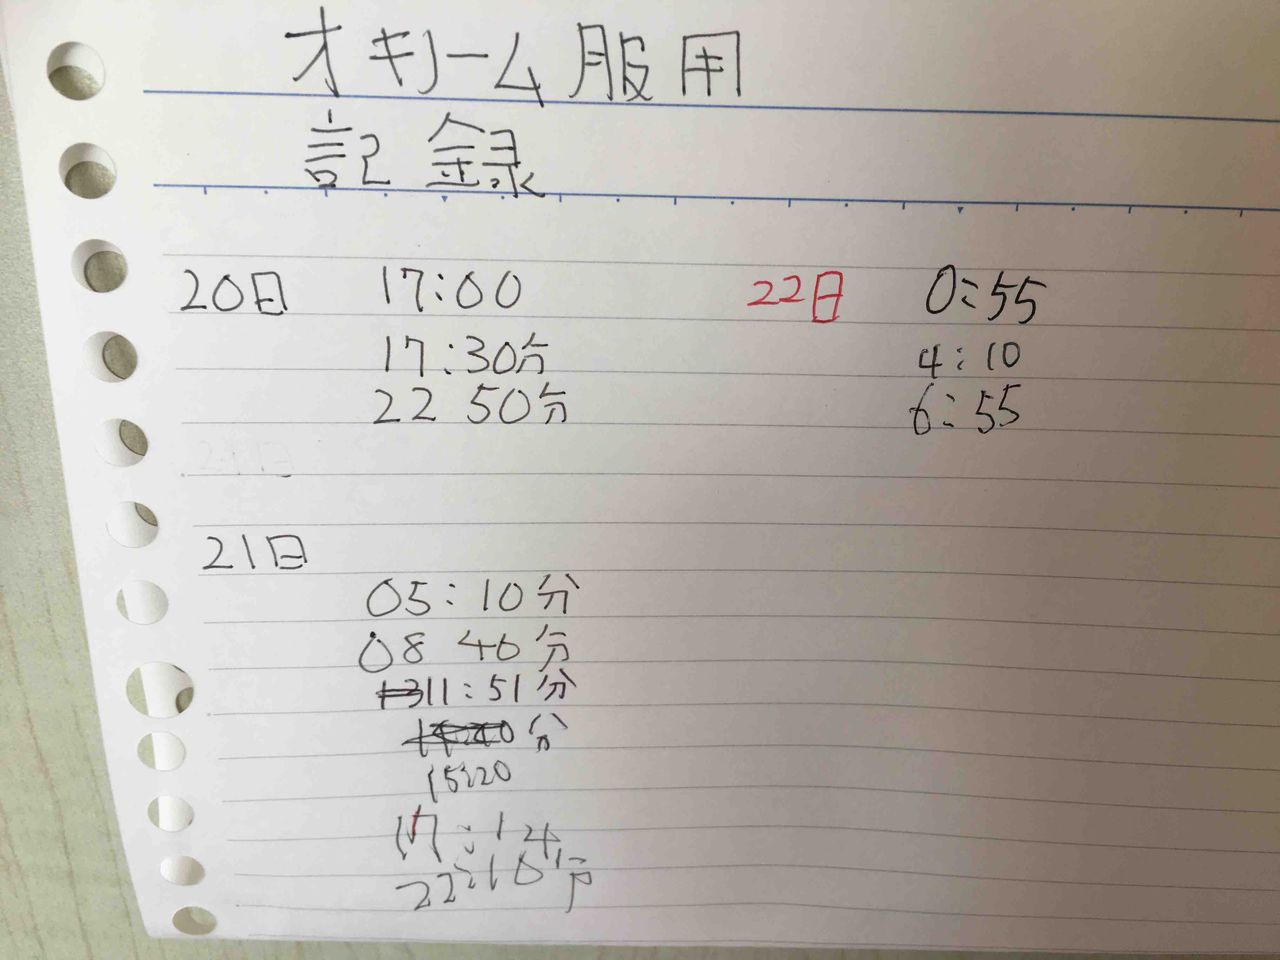 オキノーム服用
記録
20日 17:00
17:30分
22 50分
21日
05:10分
08 40分
11:51分
分
15:20
17:14
22:10分
22日 0:55
4:10
6:55